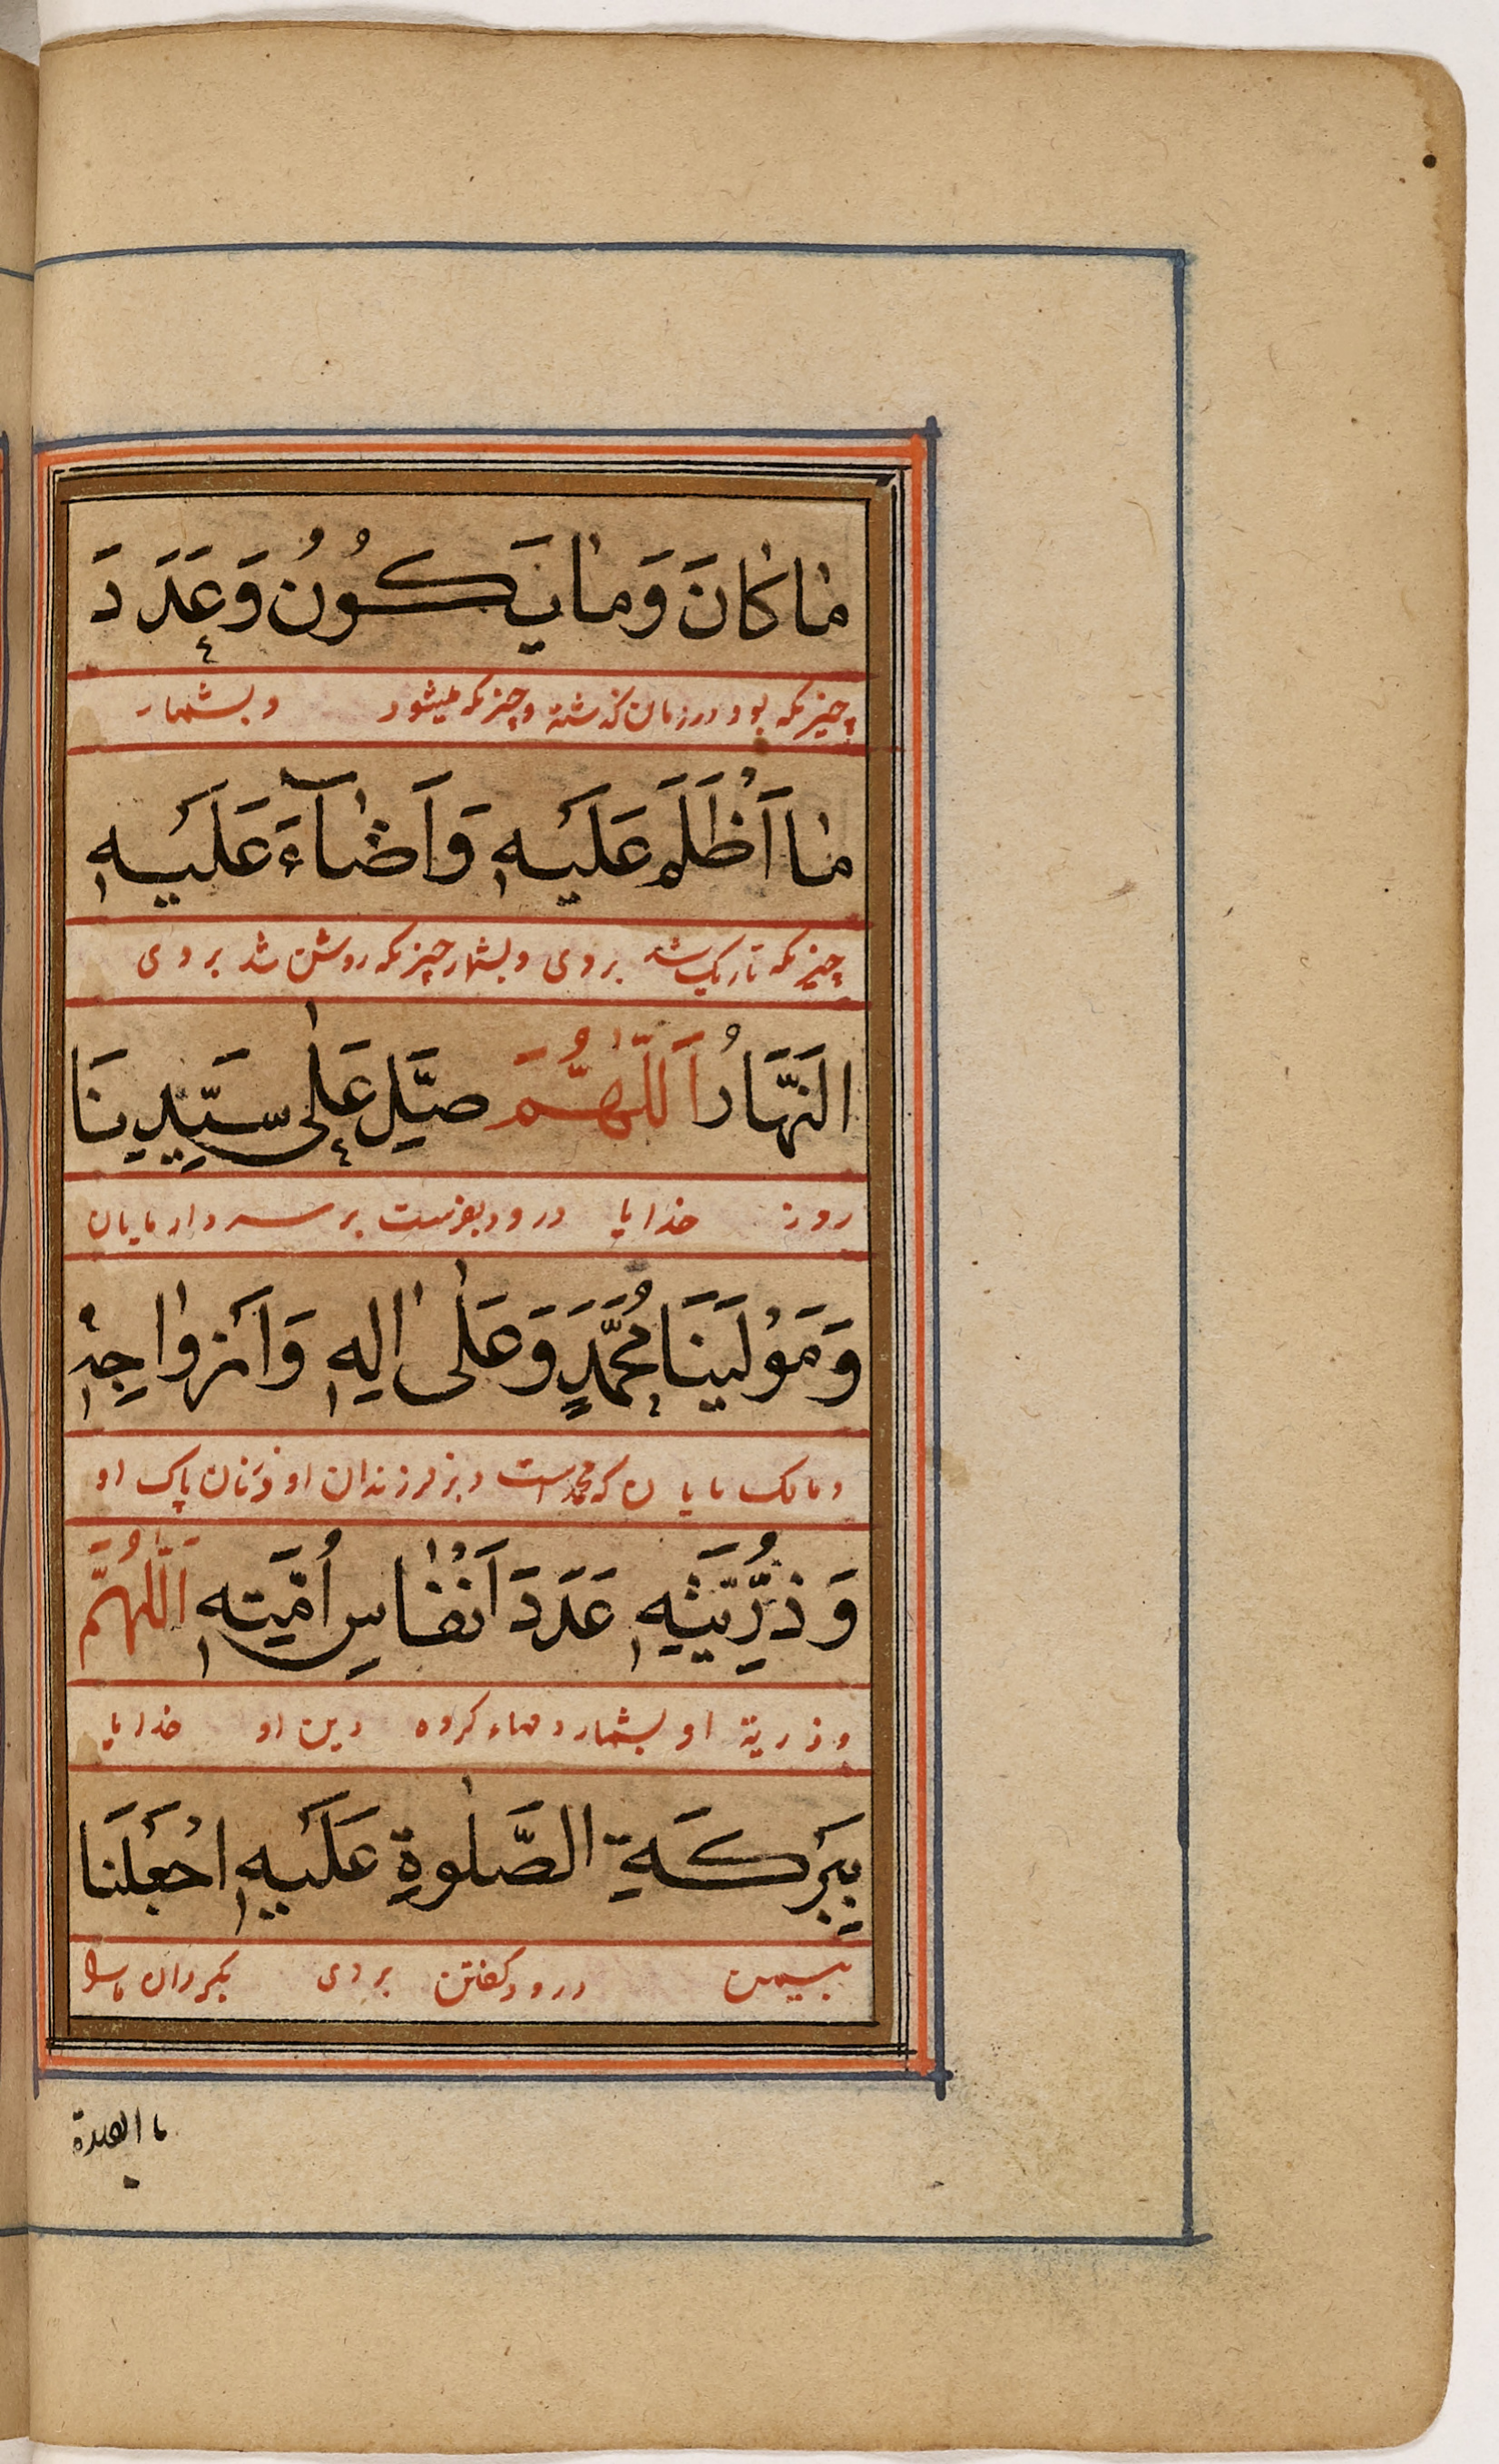 مٰا كٰانَ وَمٰا يَكُونُ وَعَدَدَ
چیزیکه بود در زمان گذشته و چیزیکه میشود و بشمار
مٰا اَظْلَمَ عَلَيْهِ وَاَضٰآءَ عَلَيْهِ
چیزیکه تاریک شد بر وی و بشمار چیزیکه روشن شد بر وی
النَّهَارُ اَللّٰهُمَّ صَلِّ عَلٰى سَيِّدِنَا
روز خدایا درود بفرست بر سردار مایان
وَمَوْلَينَا مُحَمَّدٍ وَعَلٰى اٰلِهٖ وَاَزْوٰاجِهٖ
و مالک مایان که محمد است و بر فرزندان او و زنان پاک او
وَذُرِّيَّتِهٖ عَدَدَ اَنْفٰاسِ اُمَّتِهٖ اَللّٰهُمَّ
و ذریة او بشمار دمهاء کروه دین او خدایا
بِبَرَكَةِ الصَّلٰوةِ عَلَيْهِ اجْعَلْنَا
بیمن درود گفتن بر وی بگردان ما را